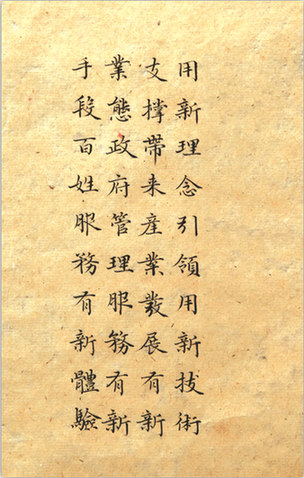 用新理念引領用新技術
支撐帶来産業發展有新
業態政府管理服務有新
手段百姓服務有新體驗